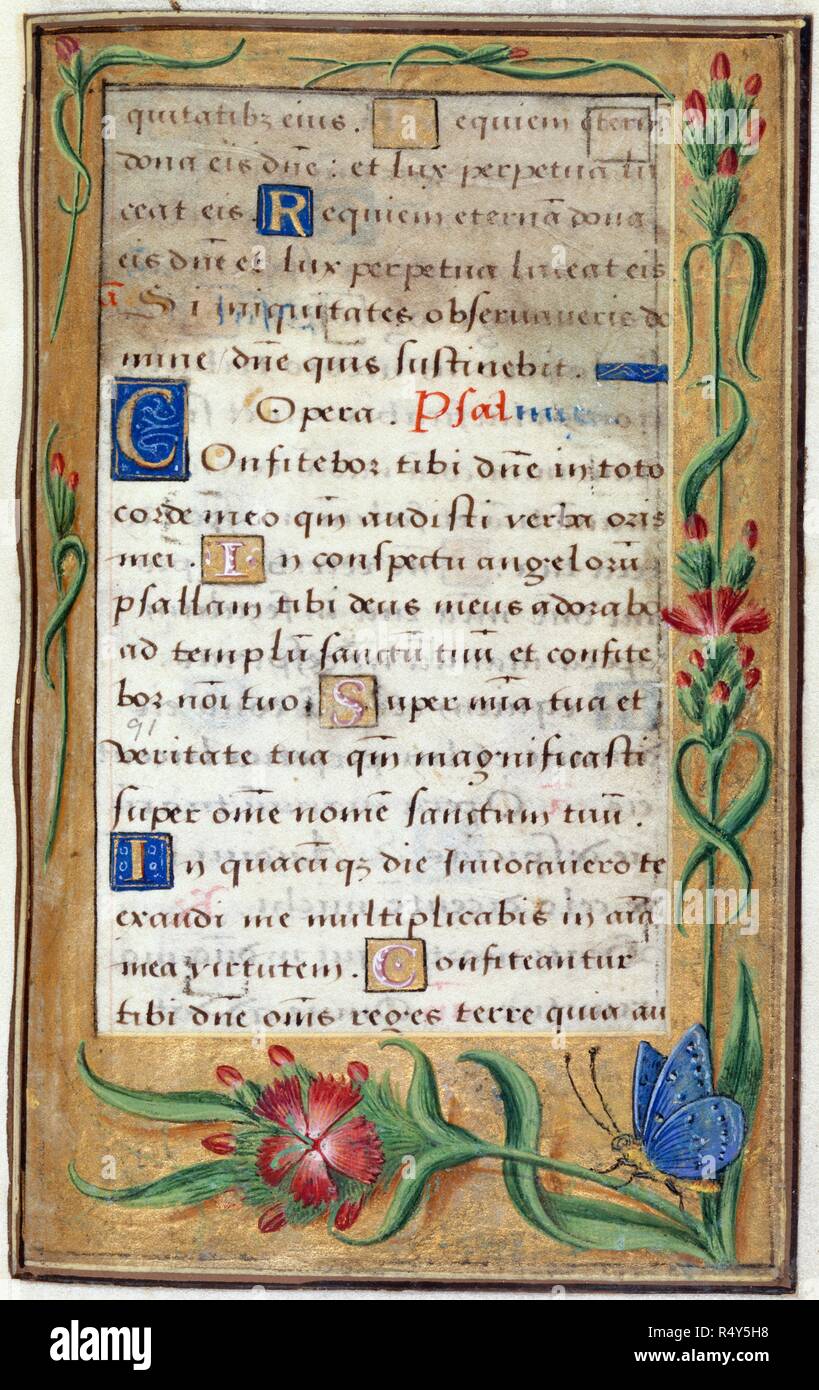 quitatibꝫ eius. equiem etern
dona eis dn̄e: et lux perpetua lu
ceat eis. Requiem eternā dona
eis dn̄e et lux perpetua luceat eis
ā Si iniquitates observaveris do
mine dn̄e quis sustinebit.
Opera. Psalmus
Confitebor tibi dn̄e in toto
corde meo qm̄ audisti verba oris
mei. In conspectu angelorū
psallam tibi deus meus adorabo
ad templū sanctū tuū et confite
bor nōi tuo. Super mīa tua et
91
veritate tua qm̄ magnificasti
super om̄e nomen sanctum tuū.
In quacūqꝫ die Invocavero te
exaudi me multiplicabis in aīa
mea virtutem. Confiteantur
tibi dn̄e om̄s reges terre quia au
alamy
Image ID: R4Y5H8
www.alamy.com